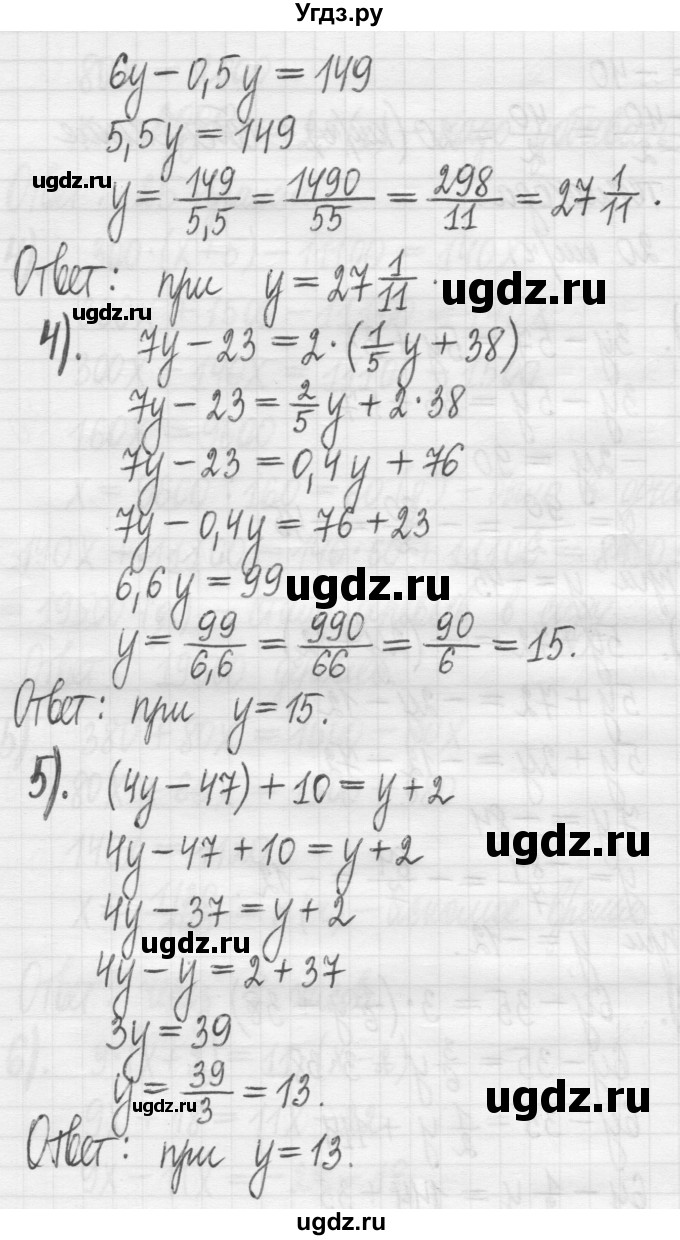 Угдз.ру
6y − 0,5y = 149
5,5y = 149
ugdz.ru
y = 149/5,5 = 1490/55 = 298/11 = 27 1/11.
Ответ: при y = 27 1/11.
ugdz.ru
ugdz.ru
4). 7y − 23 = 2 · (1/5 y + 38)
7y − 23 = 2/5 y + 2 · 38
7y − 23 = 0,4y + 76
7y − 0,4y = 76 + 23
6,6y = 99
ugdz.ru
y = 99/6,6 = 990/66 = 90/6 = 15.
Ответ: при y = 15.
5). (4y − 47) + 10 = y + 2
ugdz.ru
4y − 47 + 10 = y + 2
4y − 37 = y + 2
ugdz.ru
4y − y = 2 + 37
3y = 39
y = 39/3 = 13.
ugdz.ru
ugdz.ru
Ответ: при y = 13.
ugdz.ru